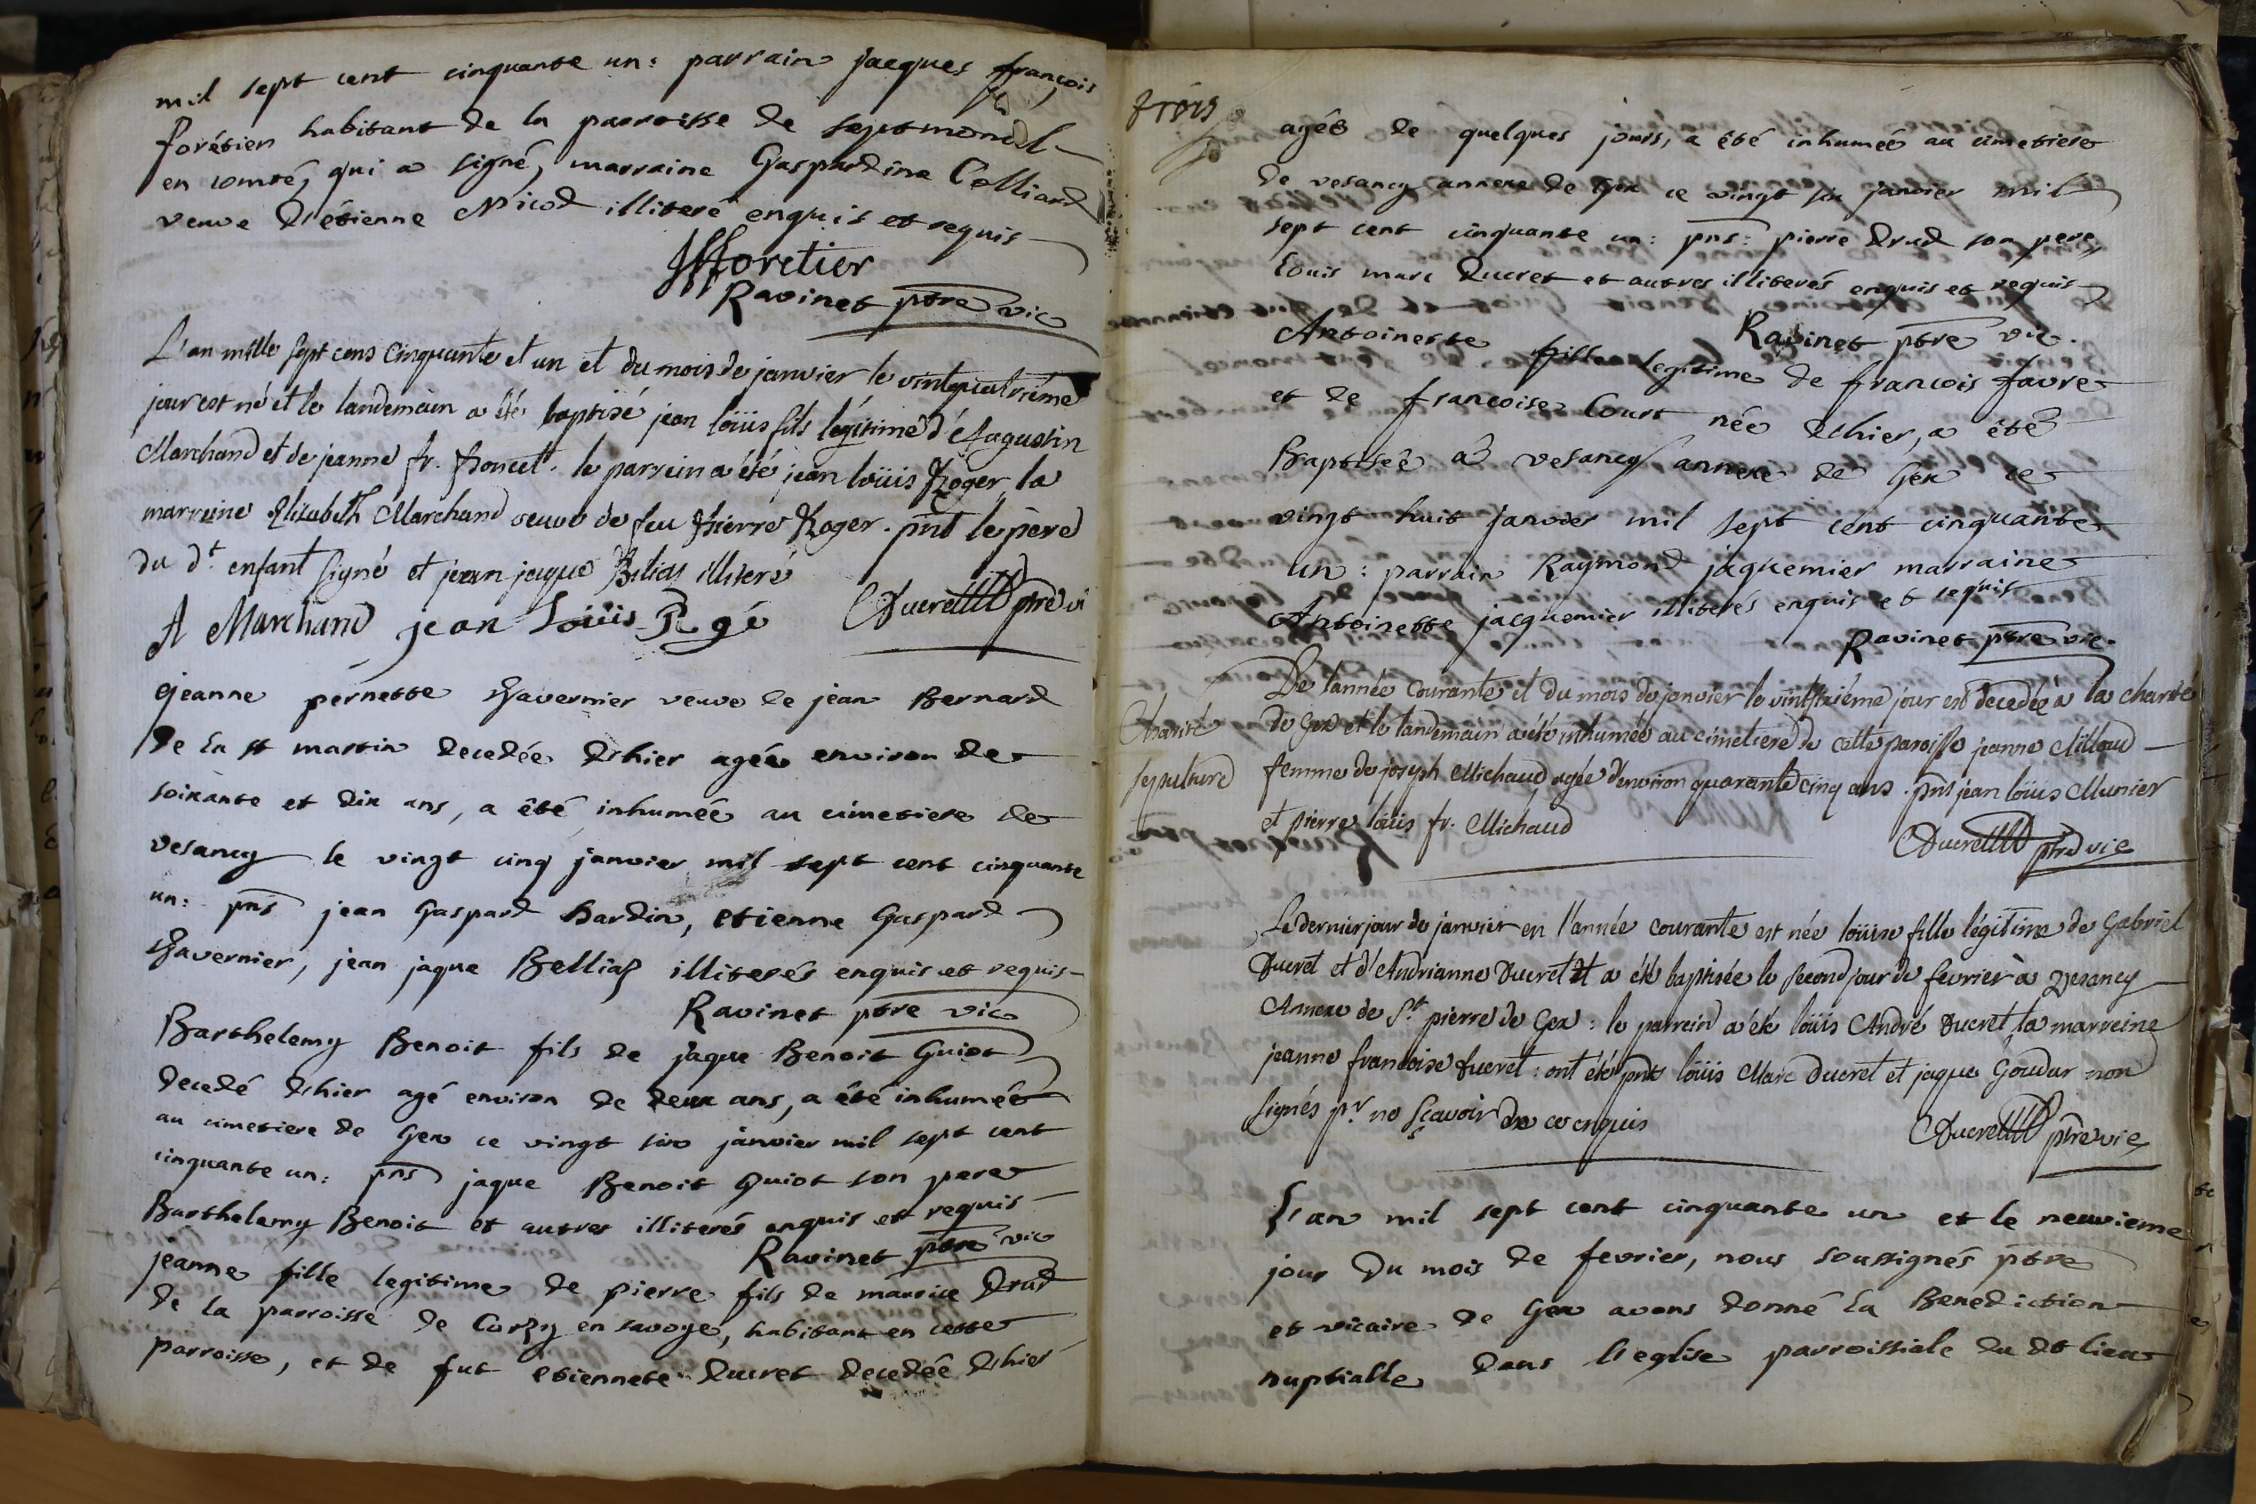 mil sept cent cinquante un: parrain jacques françois
forétier habitant de la parroisse de septmoncel
en comté, qui a signé, marraine Gaspardine Colliard
veuve d'étienne Nicod illiteré enquis et requis
JfForetier
Ravinet ptre vic
L'an mille sept cens cinquante et un et du mois de janvier le vintquatrieme
jour est né et le landemain a été baptisé jean loüis fils légitime d'Augustin
Marchand et de jeanne fr. Poncet. le parrein a été jean loüis Roger, la
marreine Elizabeth Marchand veuve de feu Pierre Roger. pnt le père
du dt enfant signé et jean jaque Belias illiteré
A Marchand jean Loüis Rogé Ducret ptre vi
jeanne pernette tavernier veuve de jean Bernard
de la st martin decedée d'hier agée environ de
soixante et dix ans, a été inhumée au cimetiere de
vesancy le vingt cinq janvier mil sept cent cinquante
un: pns jean Gaspard hardin, etienne Gaspard
tavernier, jean jaque Bellias illiterés enquis et requis
Ravinet ptre vic
Barthelemy Benoit fils de jaque Benoit Guiot
decedé d'hier agé environ de deux ans, a été inhumée
au cimetiere de Gex ce vingt six janvier mil sept cent
cinquante un: pns jaque Benoit Guiot son pere
Barthelemy Benoit et autres illiterés enquis et requis
Ravinet ptre vic
jeanne fille legitime de pierre fils de maurice Drud
de la parroisse de Corzy en savoye, habitant en cette
parroisse, et de fut etiennete Ducret decedée d'hier
trois
agée de quelques jours, a été inhumée au cimetiere
de vesancy annexe de Gex ce vingt six janvier mil
sept cent cinquante un: pns: pierre Drud son pere,
Louis marc Ducret et autres illiterés enquis et requis
Ravinet ptre vic.
Antoinette fille legitime de francois favre
et de francoise Court née d'hier, a été
Baptisée a vesancy annexe de Gex ce
vingt huit janvier mil sept cent cinquante
un: parrain Raymond jaquemier marraine
Antoinette jacquemier illiterés enquis et requis
Ravinet ptre vic.
De l'année courante et du mois de janvier le vintsixiéme jour est decedée à la charité
Charité de Gex et le landemain a été inhumée au cimetiere de cette paroisse jeanne Milloud
sepulture femme de joseph Michaud agée d'environ quarante cinq ans. pns jean loüis Munier
et pierre loüis fr. Michaud
Ducret ptre vic
Le dernier jour de janvier en l'année courante est née loüise fille légitime de Gabriel
Ducret et d'Andrianne Ducret et a été baptisée le second jour de fevrier à Vesancy
Annexe de St pierre de Gex: le parrein a été loüis André Ducret, la marreine
jeanne francoise ducret: ont été pnts loüis Marc Ducret et jaque Goudar non
signés pr. ne sçavoir de ce enquis
Ducret ptre vic
L'an mil sept cent cinquante un et le neuvieme
jour du mois de fevrier, nous soussignés ptre
et vicaire de Gex avons donné la Benediction
nuptialle dans l'eglise parroissiale du dt lieu